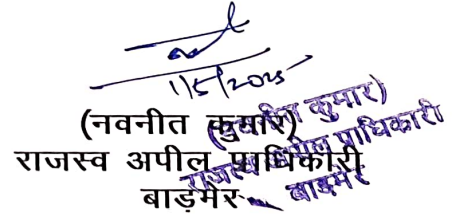 1/5/2025
(नवनीत कुमार)
राजस्व अपील प्राधिकारी
बाड़मेर
(नवनीत कुमार)
राजस्व अपील प्राधिकारी
बाडमेर